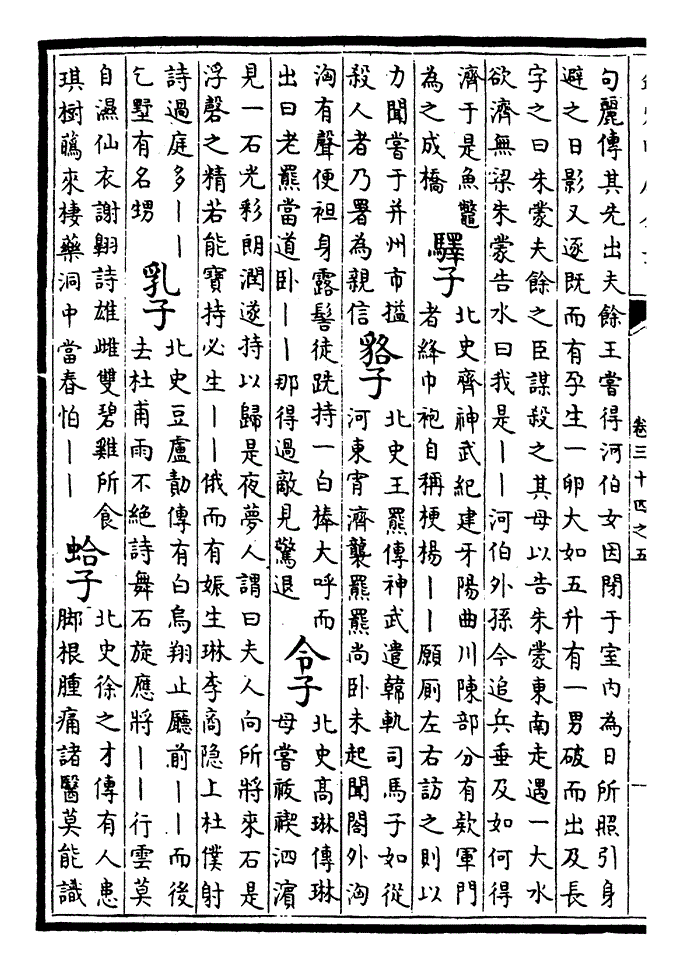 卷三十四之五
一
句麗傳其先出夫餘王嘗得河伯女因閉于室内為日所照引身
避之日影又逐既而有孕生一卵大如五升有一男破而出及長
字之曰朱蒙夫餘之臣謀殺之其母以告朱蒙東南走遇一大水
欲濟無梁朱蒙告水曰我是丨丨河伯外孫今追兵垂及如何得
濟于是魚鼈
為之成橋
驛子
北史齊神武紀建牙陽曲川陳部分有欵軍門
者絳巾袍自稱梗楊丨丨願厠左右訪之則以
力聞嘗于并州市搤
殺人者乃署為親信
貉子
北史王羆傳神武遣韓軌司馬子如從
河東宵濟襲羆羆尚卧未起聞閤外洶
洶有聲便袒身露髻徒跣持一白棒大呼而
出曰老羆當道卧丨丨那得過敵見驚退
令子
北史高琳傳琳
母嘗祓禊泗濱
見一石光彩朗潤遂持以歸是夜夢人謂曰夫人向所將來石是
浮磬之精若能寶持必生丨丨俄而有娠生琳李商隐上杜僕射
詩過庭多丨丨
乞墅有名甥
乳子
北史豆盧勣傳有白烏翔止廳前丨丨而後
去杜甫雨不絶詩舞石旋應將丨丨行雲莫
自濕仙衣謝翺詩雄雌雙碧雞所食
琪樹鷰來棲藥洞中當春怕丨丨
蛤子
北史徐之才傳有人患
脚根腫痛諸醫莫能識